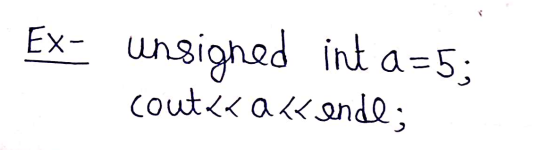 Ex- unsigned int a=5;
cout<<a<<endl;